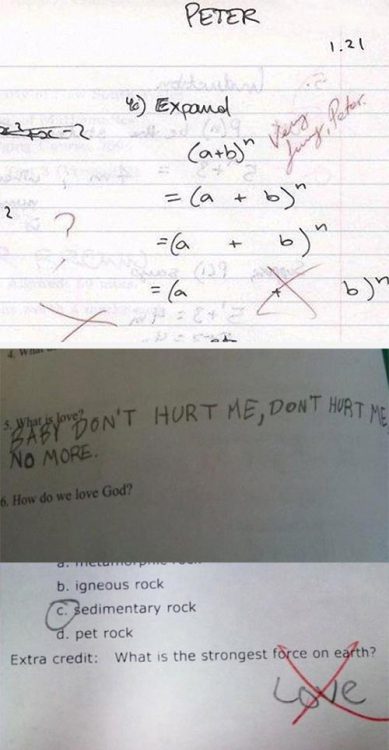 PETER
1.21
4c) Expand
(a+b)ⁿ
Very funny, Peter.
= (a + b)ⁿ
?
= (a + b)ⁿ
= (a + b)ⁿ
5. What is love?
BABY DON'T HURT ME, DON'T HURT ME
NO MORE.
6. How do we love God?
a. metamorphic rock
b. igneous rock
c. sedimentary rock
d. pet rock
Extra credit: What is the strongest force on earth?
Love